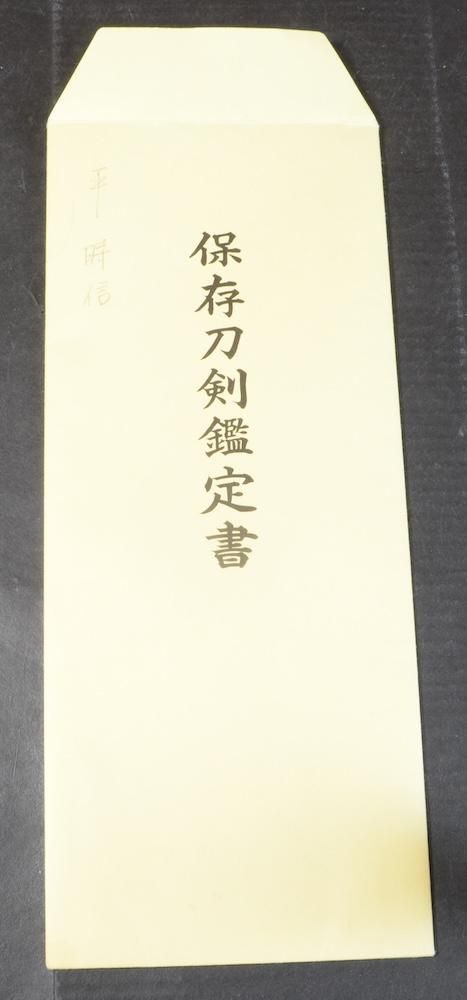 保存刀剣鑑定書
平時信